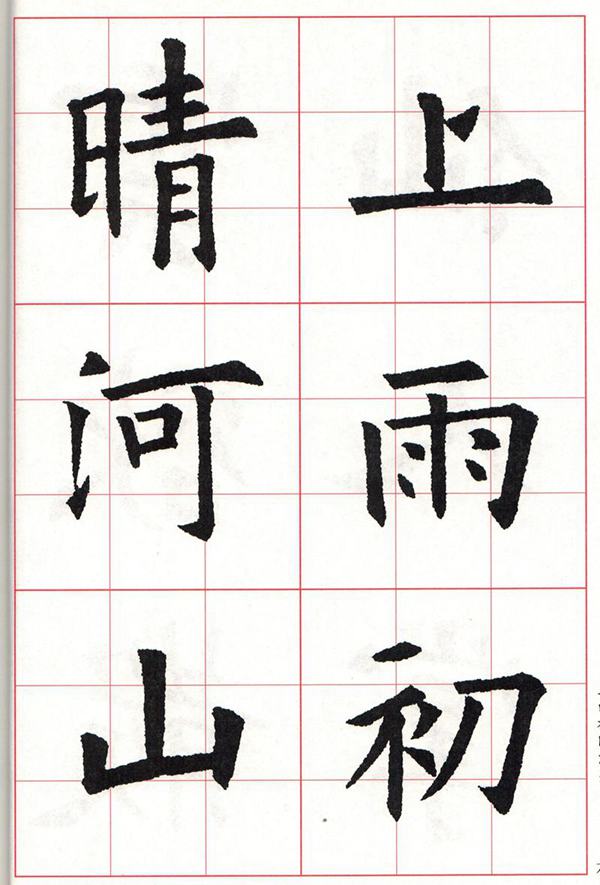 上雨初
晴河山